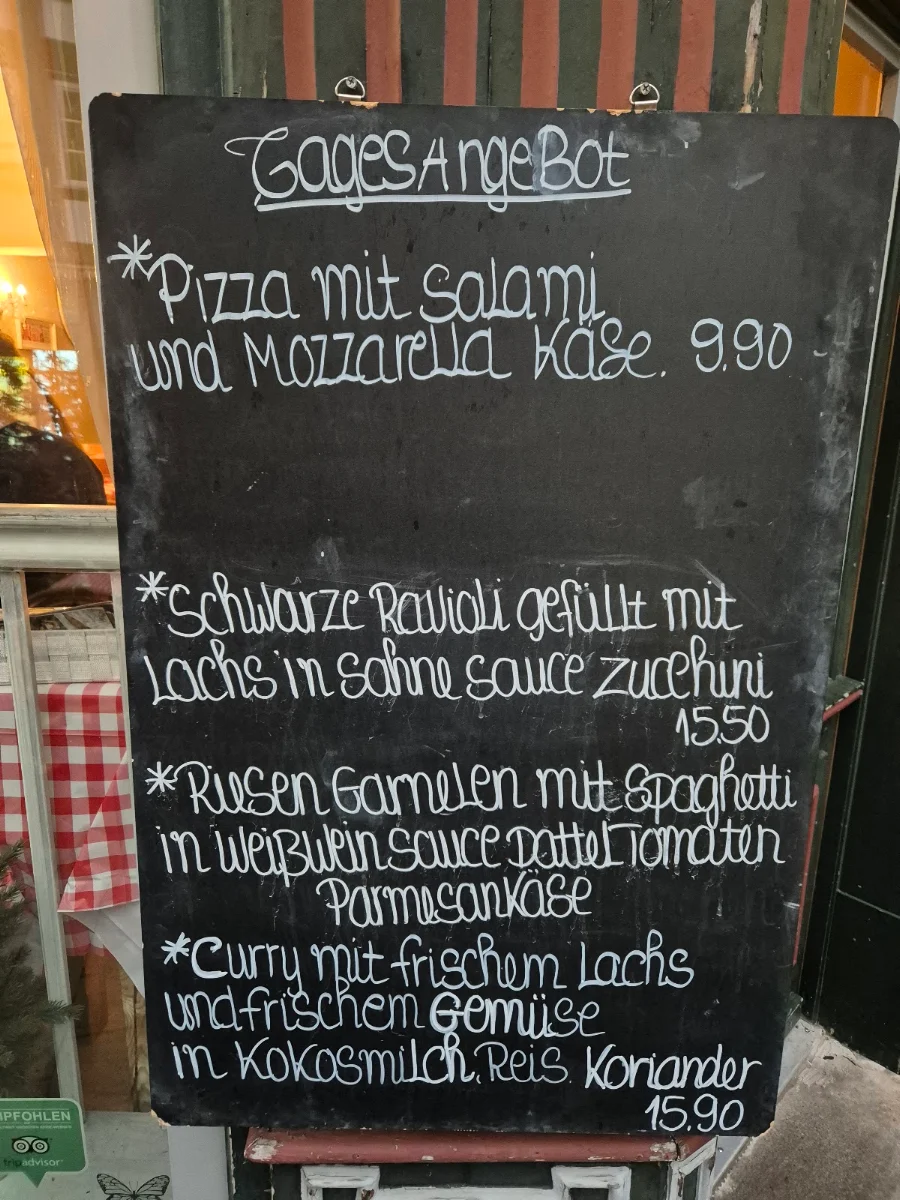 TagesAngeBot
*Pizza mit Salami
und Mozzarella Käse. 9.90
*Schwarze Ravioli gefüllt mit
Lachs in Sahne sauce zucchini
15.50
*Riesen Garnelen mit Spaghetti
in Weißwein sauce Dattel Tomaten
Parmesankäse
*Curry mit frischem Lachs
und frischem Gemüse
in Kokosmilch, Reis. Koriander
15.90
MPFOHLEN
tripadvisor